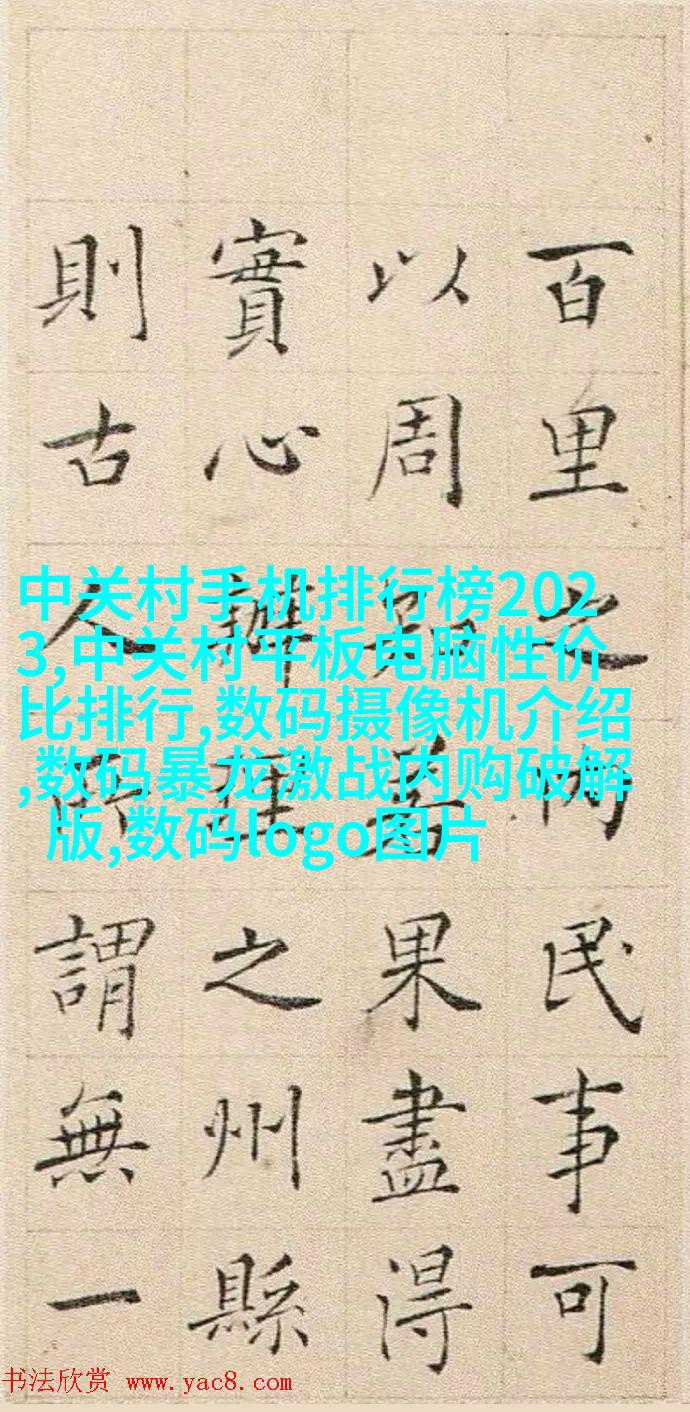 百里之內民事可
以周若果盡得
實心辦理之州縣
則古人所謂無一
中关村手机排行榜202
3,中关村平板电脑性价
比排行,数码摄像机介绍
,数码暴龙激战内购破解
版,数码logo图片
书法欣赏 www.yac8.com